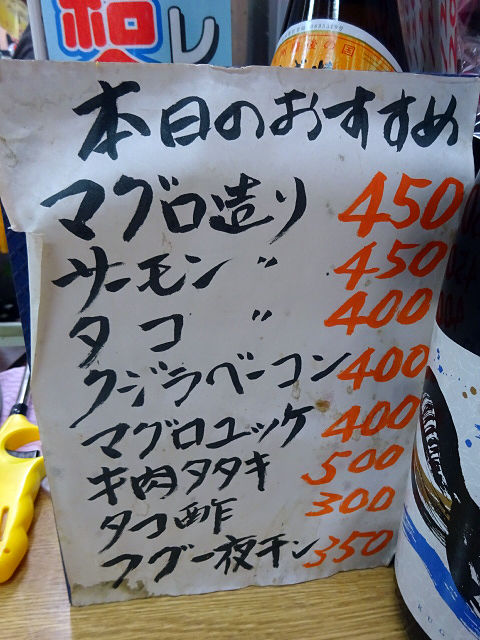 レ
の国
本日のおすすめ
マグロ造り 450
サーモン 〃 450
タコ 〃 400
クジラベーコン 400
マグロユッケ 400
牛肉タタキ 500
タコ酢 300
フグ一夜干し 350